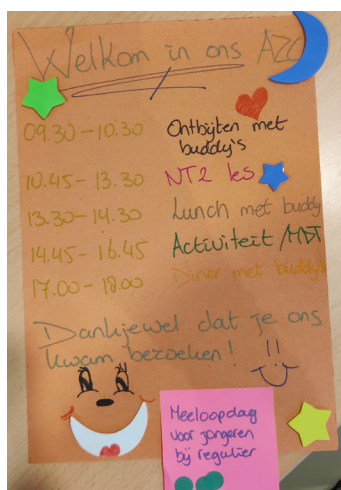 Welkom in ons AZC
09.30 - 10.30 Ontbijten met
buddy's
10.45 - 13.30 NT2 les
13.30 - 14.30 Lunch met buddy
14.45 - 16.45 Activiteit / MDT
17.00 - 18.00 Diner met buddy's
Dankjewel dat je ons
kwam bezoeken!
Meeloopdag
voor jongeren
bij regulier